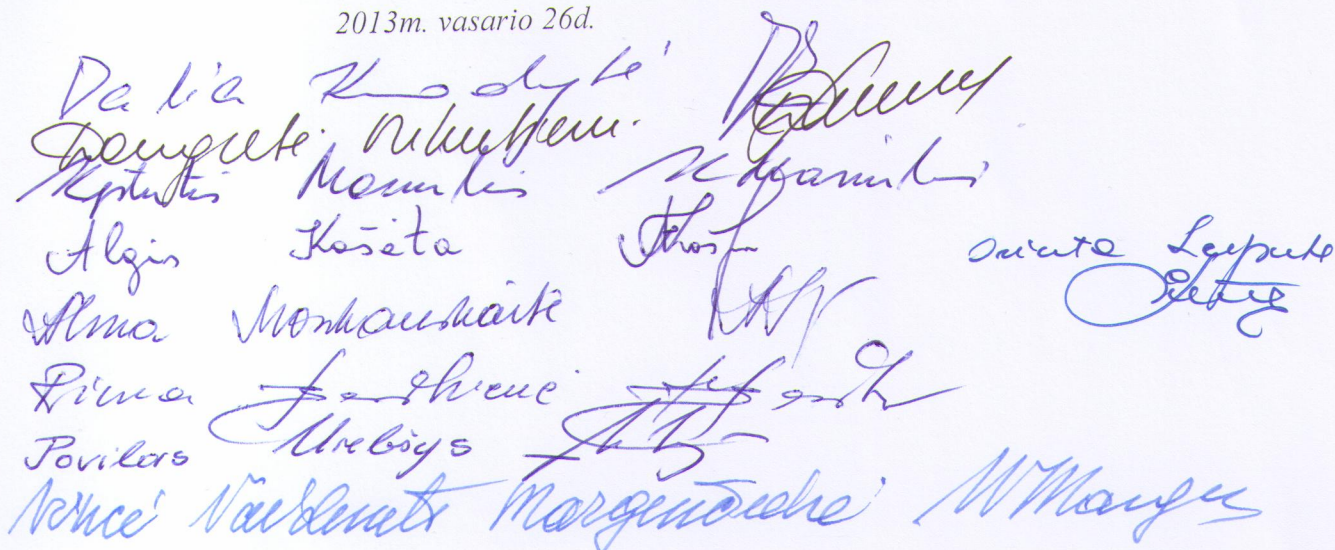 2013m. vasario 26d.
Dalia Kuodytė
Dangutė Mikutienė
Kęstutis Masiulis K Masiulis
Algis Kašėta
Orinta Leiputė
Alma Monkauskaitė
Rima Baškienė
Povilas Urbšys
Vincė Vaidevutė Margevičienė